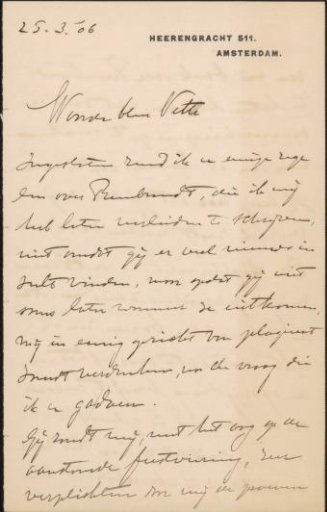 25.3.'06
HEERENGRACHT 511.
AMSTERDAM.
Waarde heer Veth
Ingesloten zend ik u eenige rege
len over Rembrandt, die ik mij
heb laten verleiden te schrijven,
niet omdat gij er veel nieuws in
zult vinden, maar opdat gij niet
soms later wanneer ze uitkomen,
mij in eenig opzicht van plagiaat
zoudt verdenken, en de vraag die
ik u
Gij zoudt mij, met het oog op de
aanstaande feestviering, zeer
verplichten door mij de proeven